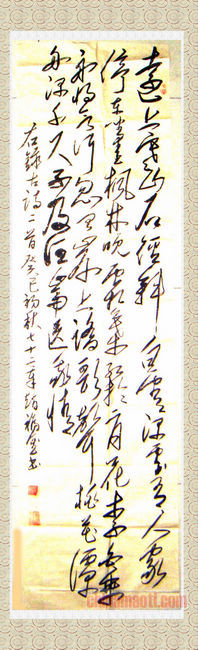 遠上寒山石徑斜白雲深處有人家
停车坐爱楓林晚霜葉紅於二月花李白乘
舟将欲行忽聞岸上踏歌聲桃花潭
水深千尺不及汪倫送我情
右錄古诗二首癸巳初秋七十二